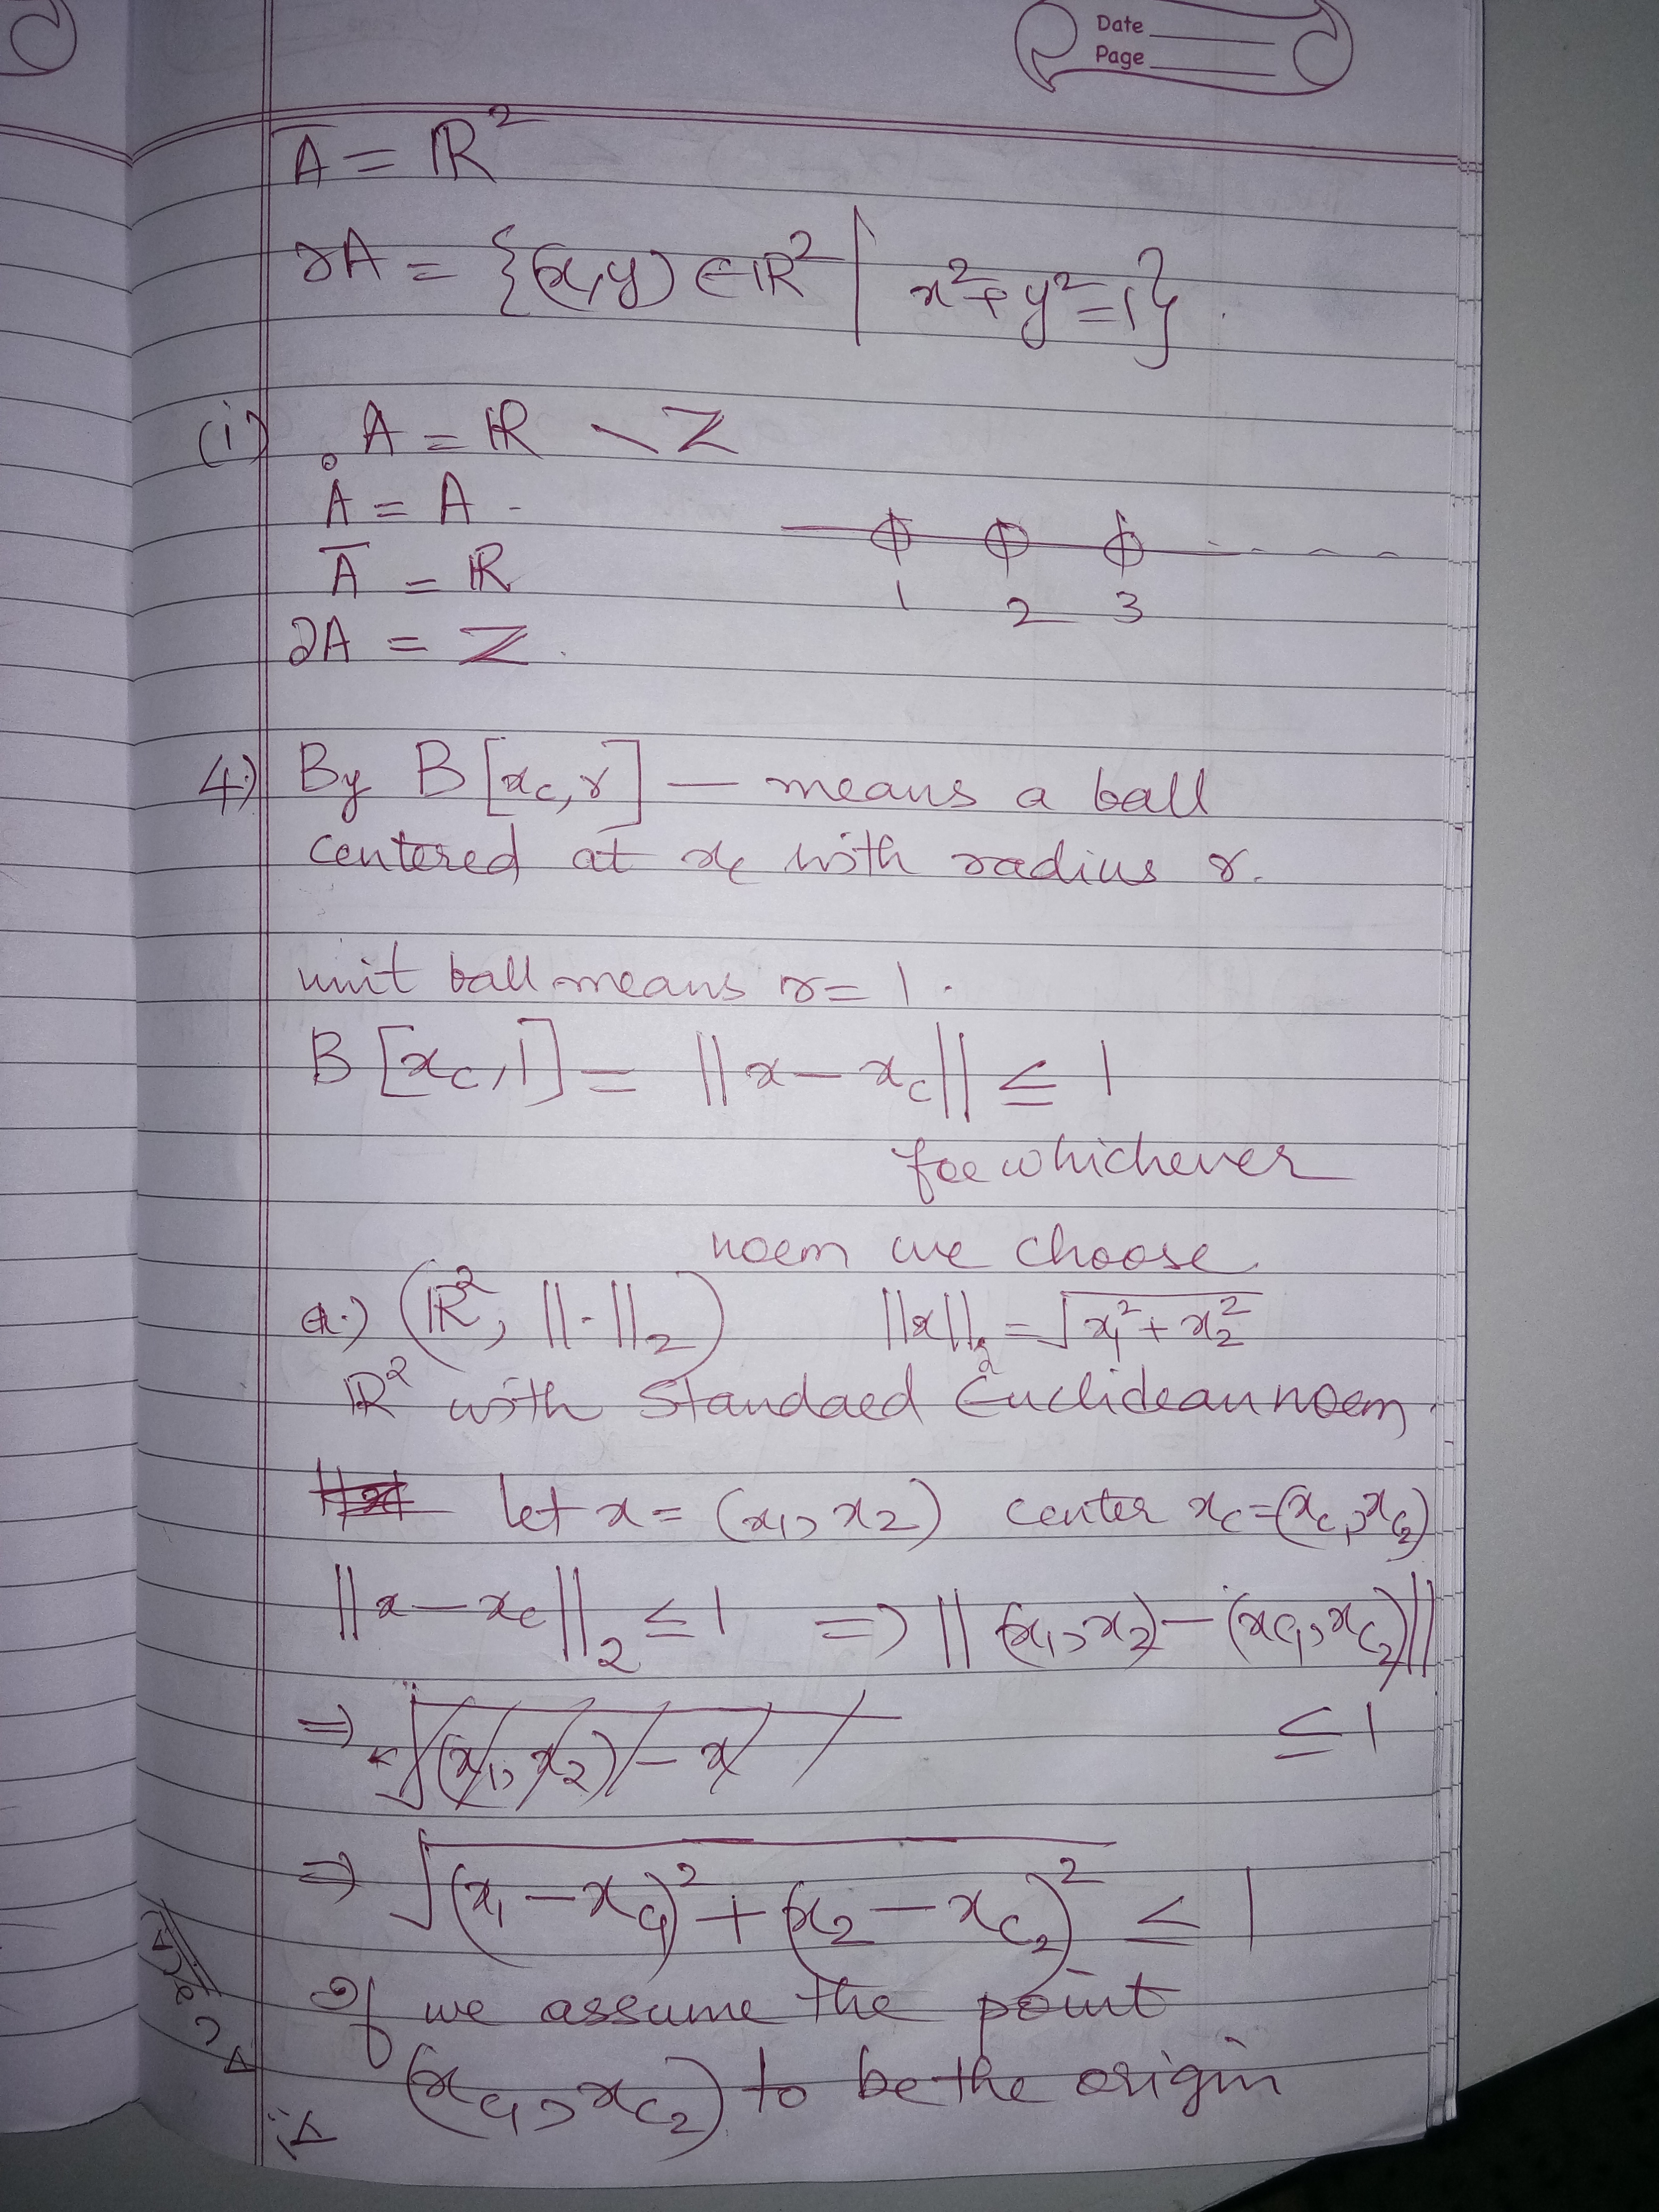 Date
Page
A̅ = ℝ²
∂A = {(x,y) ∈ ℝ² | x²+y²=1}.
(i) A = ℝ \ Z
Å = A
A̅ = ℝ
1 2 3
∂A = Z.
4.) By B[x_c, r] — means a ball
centered at x_c with radius r.
unit ball means r=1.
B[x_c, 1] = ||x − x_c|| ≤ 1
for whichever
norm we choose.
a.) (ℝ², ||·||₂) ||x||₂ = √(x₁² + x₂²)
ℝ² with Standard Euclidean norm.
let x = (x₁, x₂) center x_c = (x_c₁, x_c₂)
||x − x_c||₂ ≤ 1 ⇒ ||(x₁, x₂) − (x_c₁, x_c₂)||
⇒ √(x₁, x₂) − x ≤ 1
⇒ √((x₁ − x_c₁)² + (x₂ − x_c₂)²) ≤ 1
If we assume the point
(x_c₁, x_c₂) to be the origin